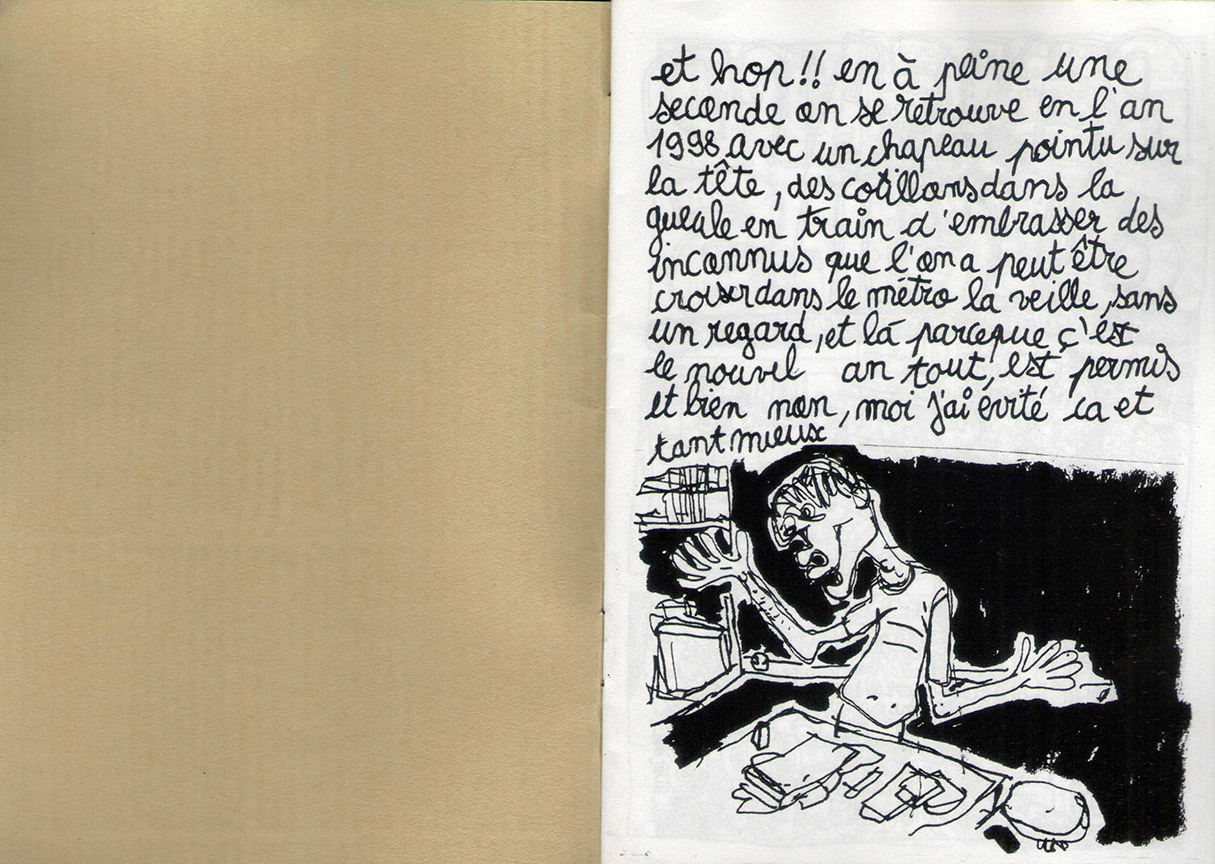 et hop!! en à peine une
seconde on se retrouve en l'an
1998 avec un chapeau pointu sur
la tête, des cotillons dans la
gueule en train d'embrasser des
inconnus que l'on a peut être
croiser dans le métro la veille, sans
un regard, et là parceque ç'ést
le nouvel an tout, est permis
et bien non, moi j'ai évité ca et
tant mieux